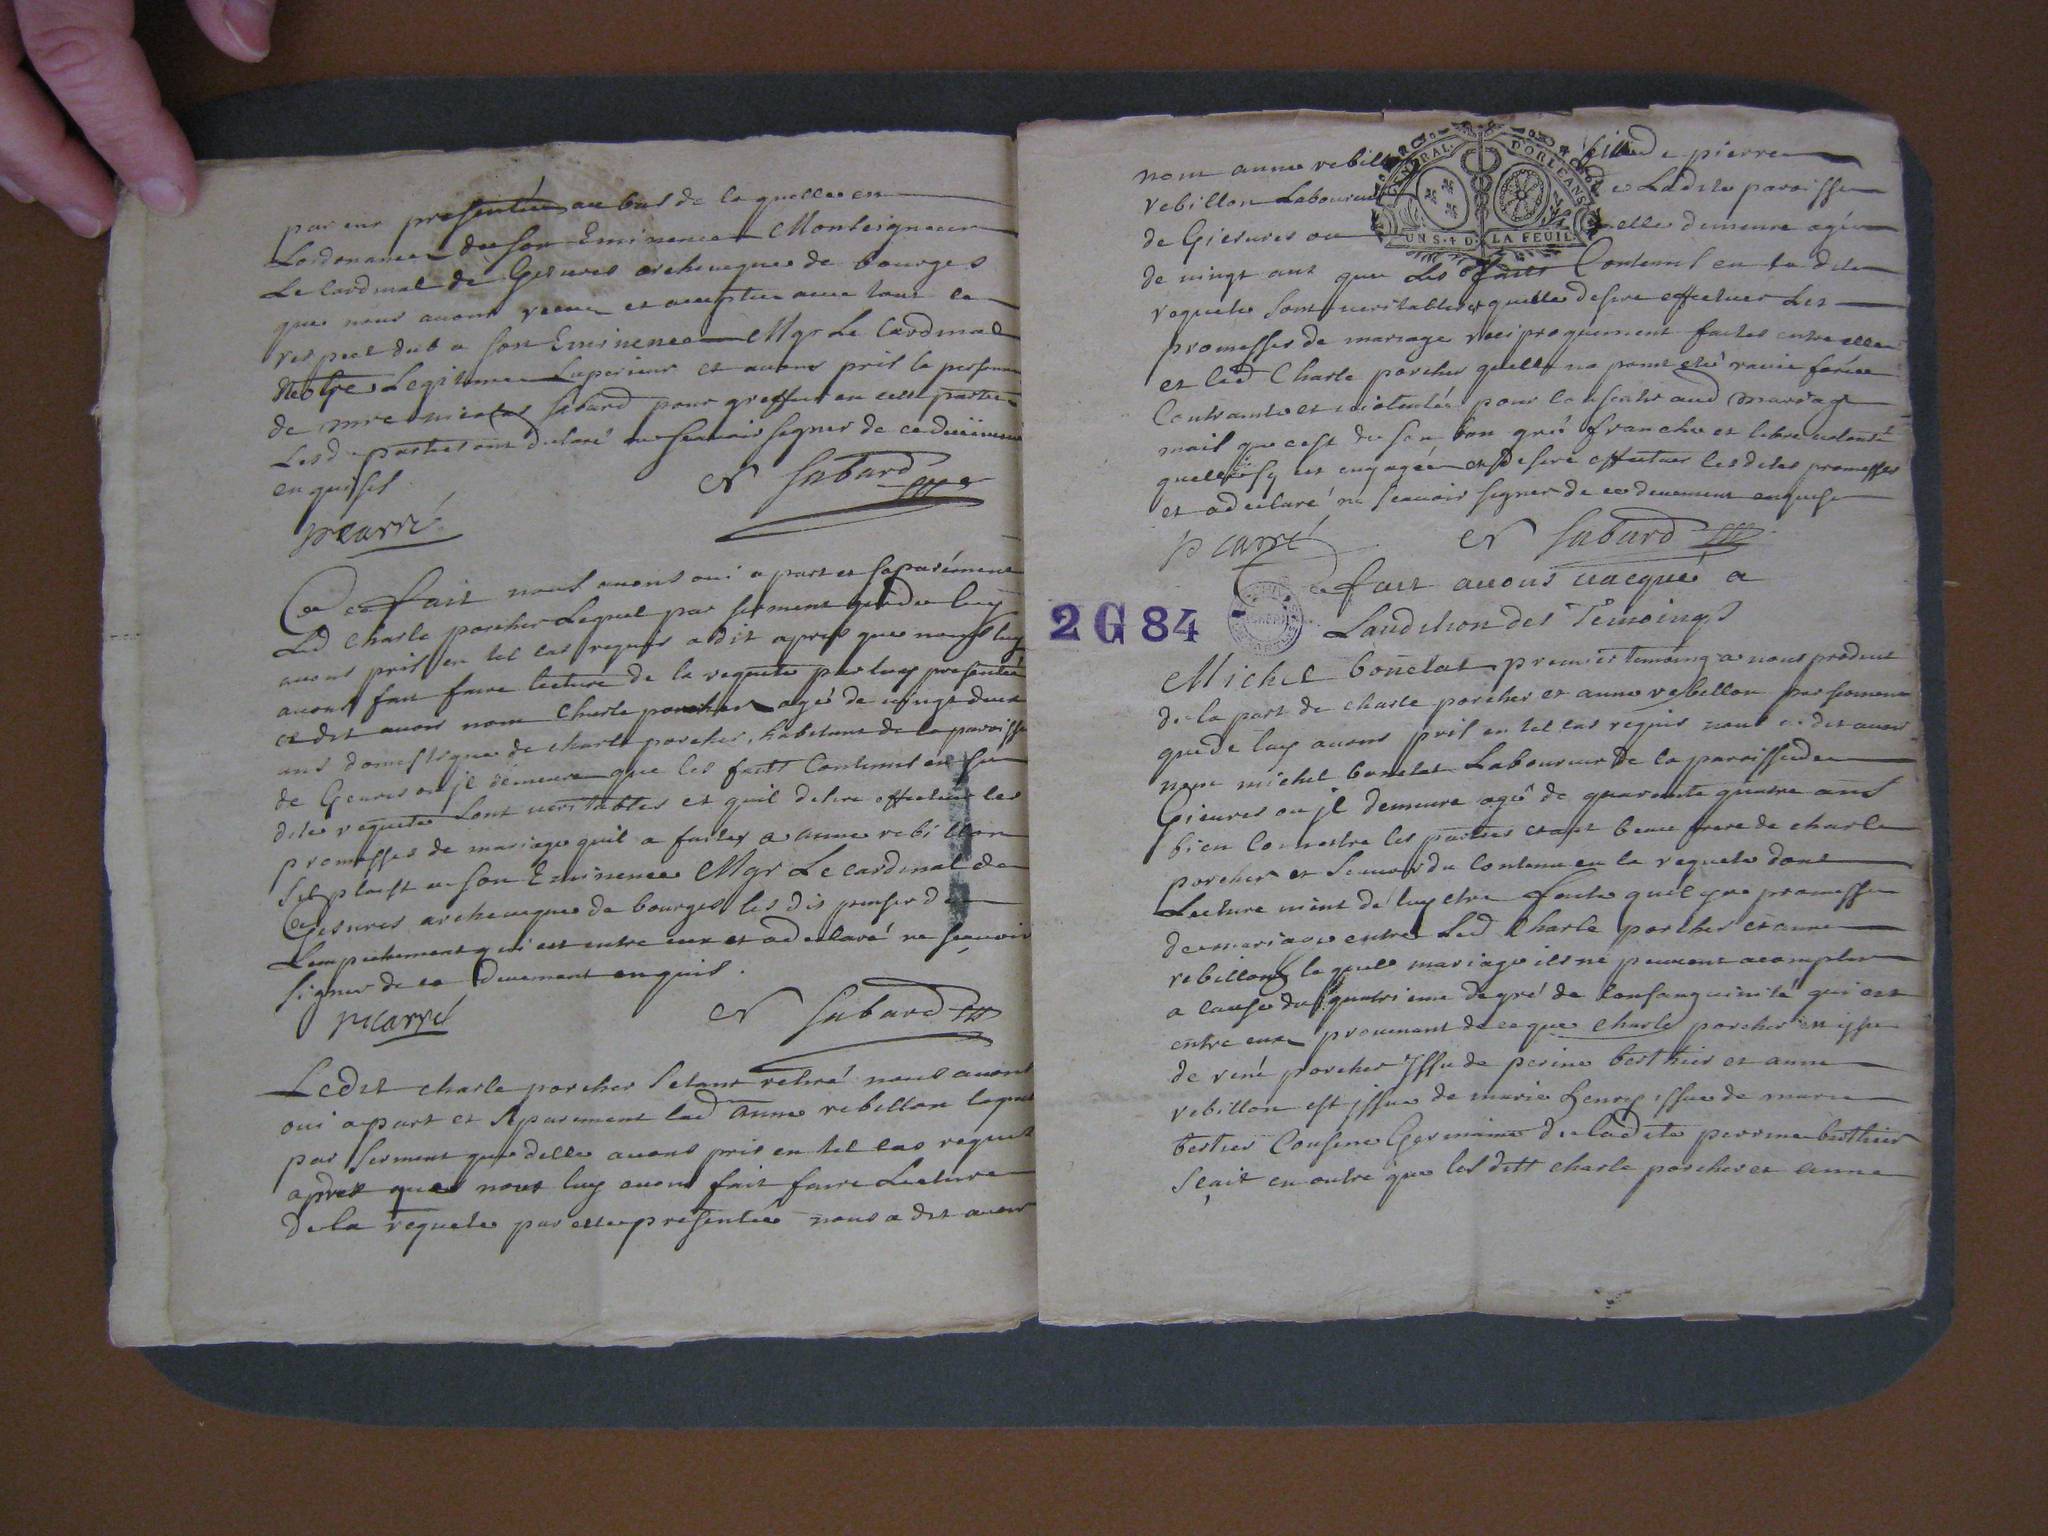 par eux presentée au bas de laquelle est
Lordonnance de son Eminence Monseigneur
Le Cardinal de Gesvres archeveque de bourges
que nous avons receue et acceptée avec tout le
respect dub a son Eminence Mgr Le Cardinal
notre Legitime superieur et avons pris la personne
de mre nicolas sabard pour greffier en cette partie
Lesd parties ont declaré ne scavoir signer de ce duëment
enquises
N Sabard
P Carré
Ce fait nous avons oui a part et separément
Led Charle porcher Lequel par serment que de luy
avons pris en tel cas requis a dit apres que nous luy
avons fait faire lecture de la requete par luy presentée
et dit avoir nom Charle porcher agé de vingt deux
ans domestique de charle porcher, habitant de la paroisse
de Geures ou jl demeure que les faits Contenus en sa
dite requete sont veritables et quil desire effectuer les
promesses de mariage quil a faites a anne rebillon
sil plaist a son Eminence Mgr Le cardinal de
Gesures archeveque de bourges les dis penser de
Lempechement qui est entre eux et a declaré ne scavoir
signer de ce Duement enquis.
P Carré
N Sabard
Ledit charle porcher setant retiré nous avons
oui apart et separement lad anne rebillon laquelle
par serment que delle avons pris en tel cas requis
apres que nous luy avons fait faire Lecture
de la requete par elle presentée nous a dit avoir
nom anne rebill fille de pierre
rebillon Laboureur de Ladite paroisse
de Giesures ou elle demeure agée
GENERAL DORLEANS
UN S. 4 D. LA FEUIL.
de vingt ans que Les faits Contenus en sa dite
requete sont veritables et quelle desire effectuer Les
promesses de mariage reciproquement faites entre elle
et led Charle porcher quelle na point eté ravie forcée
Contrainte et violentée pour consentir aud mariage
mais que cest de son bon gré franche et libre volonté
quelle sy est engagée et desire effectuer lesdites promesses
et a declaré ne scavoir signer de ce duement enquise
P Carré
N Sabard
Ce fait avons vacqué a
Laudition des Temoings
2 G 84
Michel bonnelat premier temoing a nous produit
de la part de charle porcher et anne rebillon par serment
que de luy avons pris en tel cas requis nous a dit avoir
nom michel bonnelat Laboureur de la paroisse de
Gieures ou jl demeure agé de quarante quatre ans
bien connoistre les parties etant beau frere de charle
porcher et scavoir du contenu en la requete dont
Lecture vient de luy etre faite quil y a promesse
de mariage entre Led Charle porcher et anne
rebillon lequel mariage ils ne peuvent acomplir
a cause du quatrieme degré de consanguinité qui est
entre eux provenant de ce que charle porcher est issu
de rené porcher Issu de perine berthier et anne
rebillon est jssue de marie henry issue de marie
bertier Cousine Germaine de ladite perrine berthier
sçait en outre que les dits charle porcher et anne